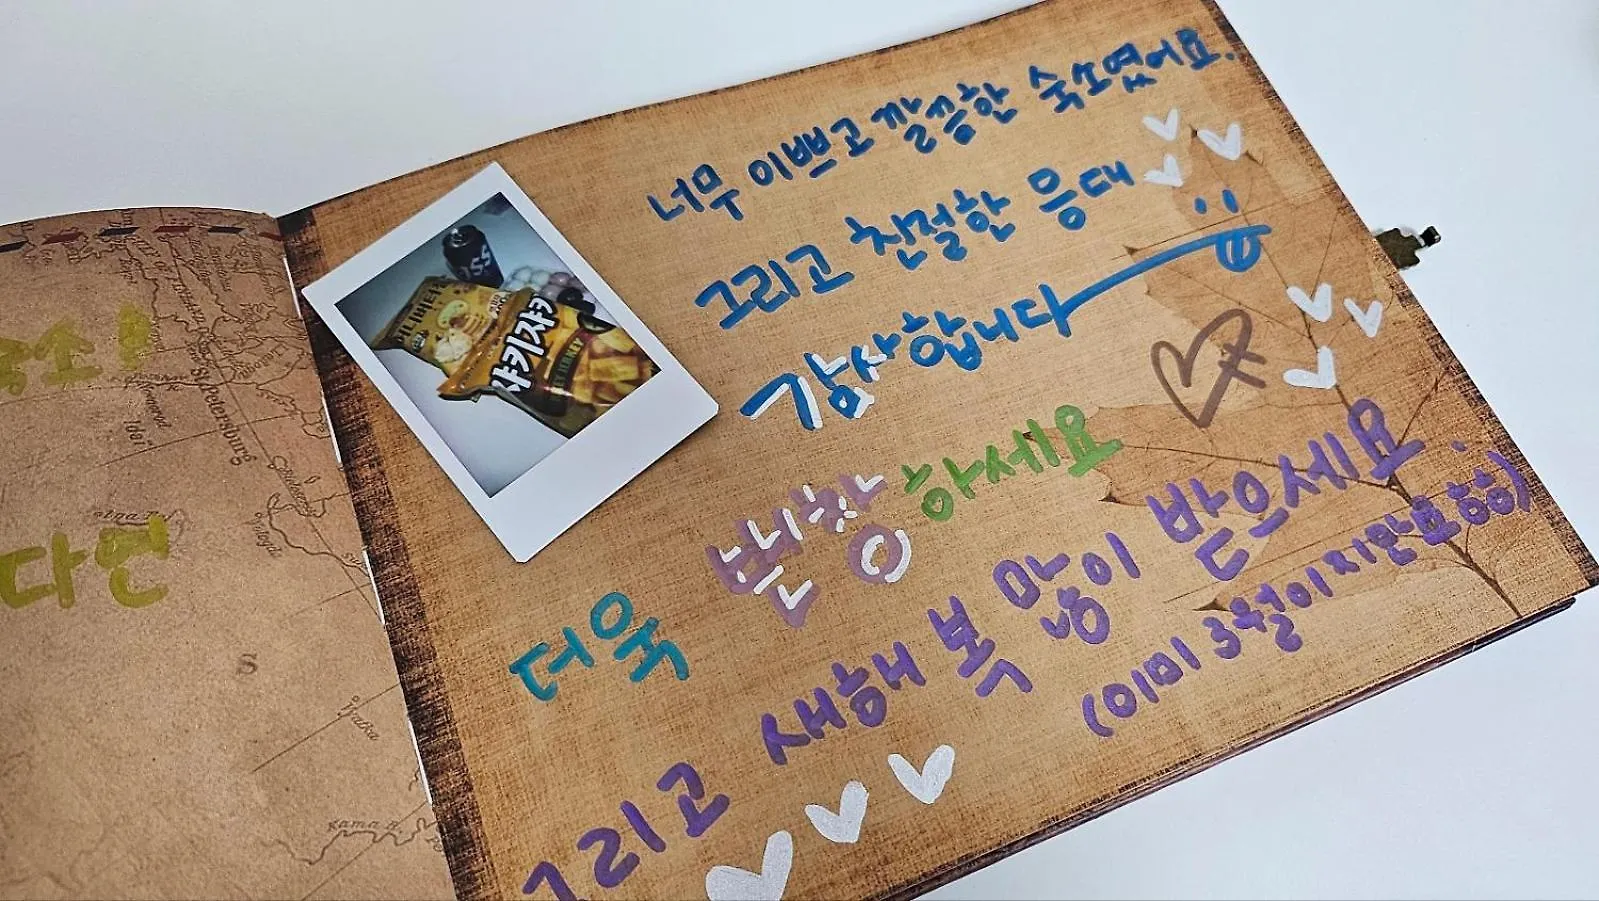 너무 이쁘고 깔끔한 숙소였어요.
그리고 친절한 응대
감사합니다
더욱 번창 하세요
그리고 새해 복 많이 받으세요
(이미 3월이지만요 ㅎㅎ)
샤키샤키
St Petersburg
Vjatka
Kama R.
S